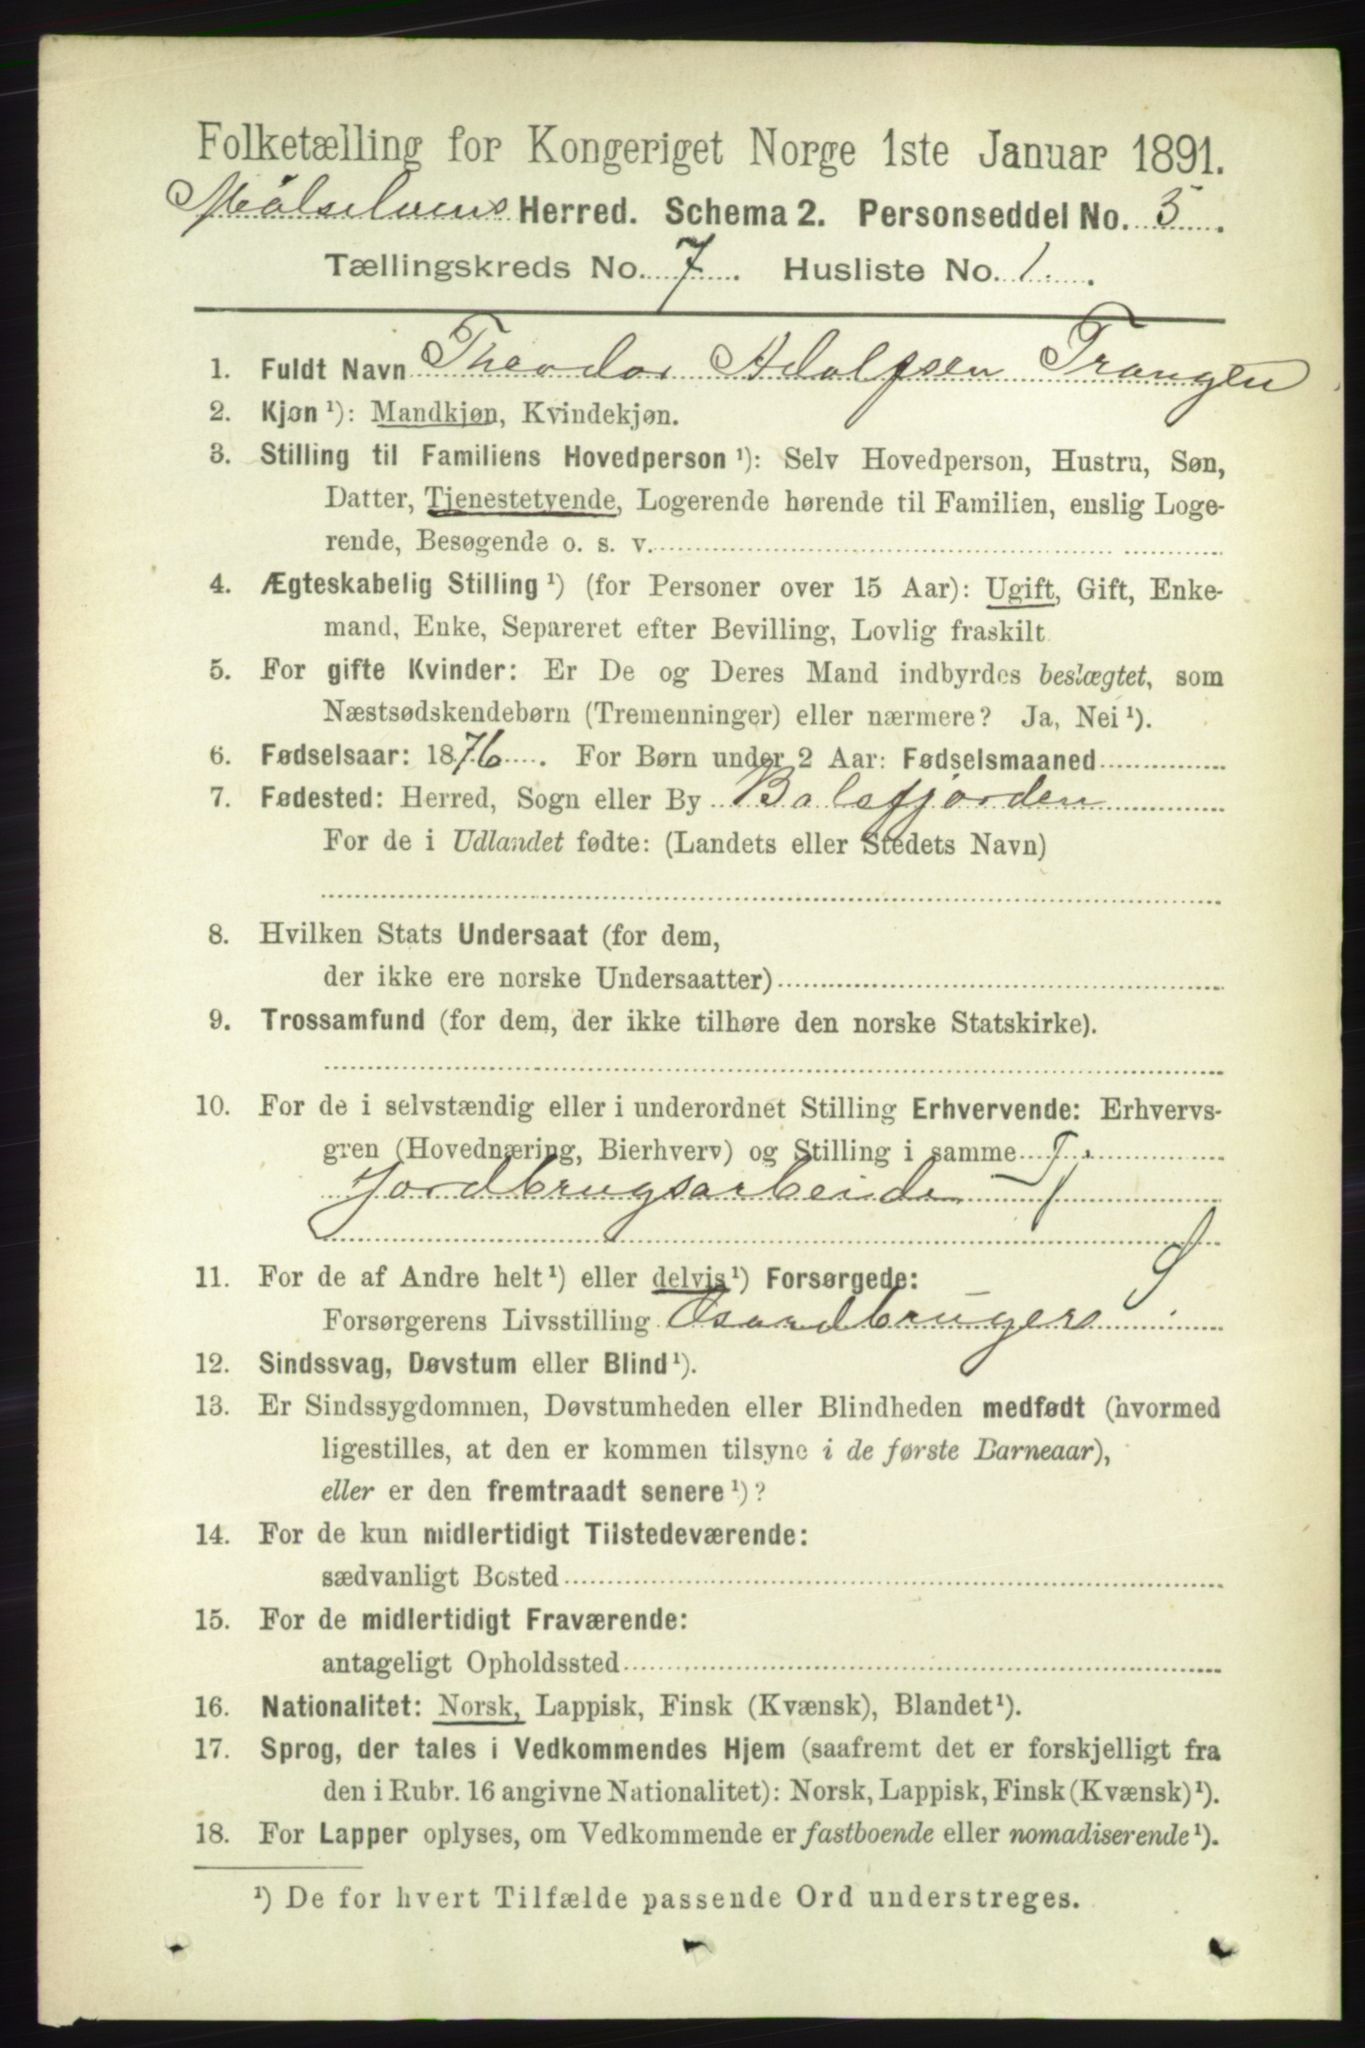 Folketælling for Kongeriget Norge 1ste Januar 1891.
Målselvens Herred. Schema 2. Personseddel No. 5.
Tællingskreds No. 7. Husliste No. 1.
1. Fuldt Navn Theodor Adolfsen Trangen
2. Kjøn ¹): Mandkjøn, Kvindekjøn.
3. Stilling til Familiens Hovedperson ¹): Selv Hovedperson, Hustru, Søn,
Datter, Tjenestetyende, Logerende hørende til Familien, enslig Loge-
rende, Besøgende o. s. v.
4. Ægteskabelig Stilling ¹) (for Personer over 15 Aar): Ugift, Gift, Enke-
mand, Enke, Separeret efter Bevilling, Lovlig fraskilt
5. For gifte Kvinder: Er De og Deres Mand indbyrdes beslægtet, som
Næstsødskendebørn (Tremenninger) eller nærmere? Ja, Nei ¹).
6. Fødselsaar: 1876. For Børn under 2 Aar: Fødselsmaaned
7. Fødested: Herred, Sogn eller By Balsfjorden
For de i Udlandet fødte: (Landets eller Stedets Navn)
8. Hvilken Stats Undersaat (for dem,
der ikke ere norske Undersaatter)
9. Trossamfund (for dem, der ikke tilhøre den norske Statskirke).
10. For de i selvstændig eller i underordnet Stilling Erhvervende: Erhvervs-
gren (Hovednæring, Bierhverv) og Stilling i samme T.
Jordbrugsarbeide
11. For de af Andre helt ¹) eller delvis ¹) Forsørgede:
Forsørgerens Livsstilling Gaardbrugers
12. Sindssvag, Døvstum eller Blind ¹).
13. Er Sindssygdommen, Døvstumheden eller Blindheden medfødt (hvormed
ligestilles, at den er kommen tilsyne i de første Barneaar),
eller er den fremtraadt senere ¹)?
14. For de kun midlertidigt Tilstedeværende:
sædvanligt Bosted
15. For de midlertidigt Fraværende:
antageligt Opholdssted
16. Nationalitet: Norsk, Lappisk, Finsk (Kvænsk), Blandet ¹).
17. Sprog, der tales i Vedkommendes Hjem (saafremt det er forskjelligt fra
den i Rubr. 16 angivne Nationalitet): Norsk, Lappisk, Finsk (Kvænsk) ¹).
18. For Lapper oplyses, om Vedkommende er fastboende eller nomadiserende ¹).
¹) De for hvert Tilfælde passende Ord understreges.